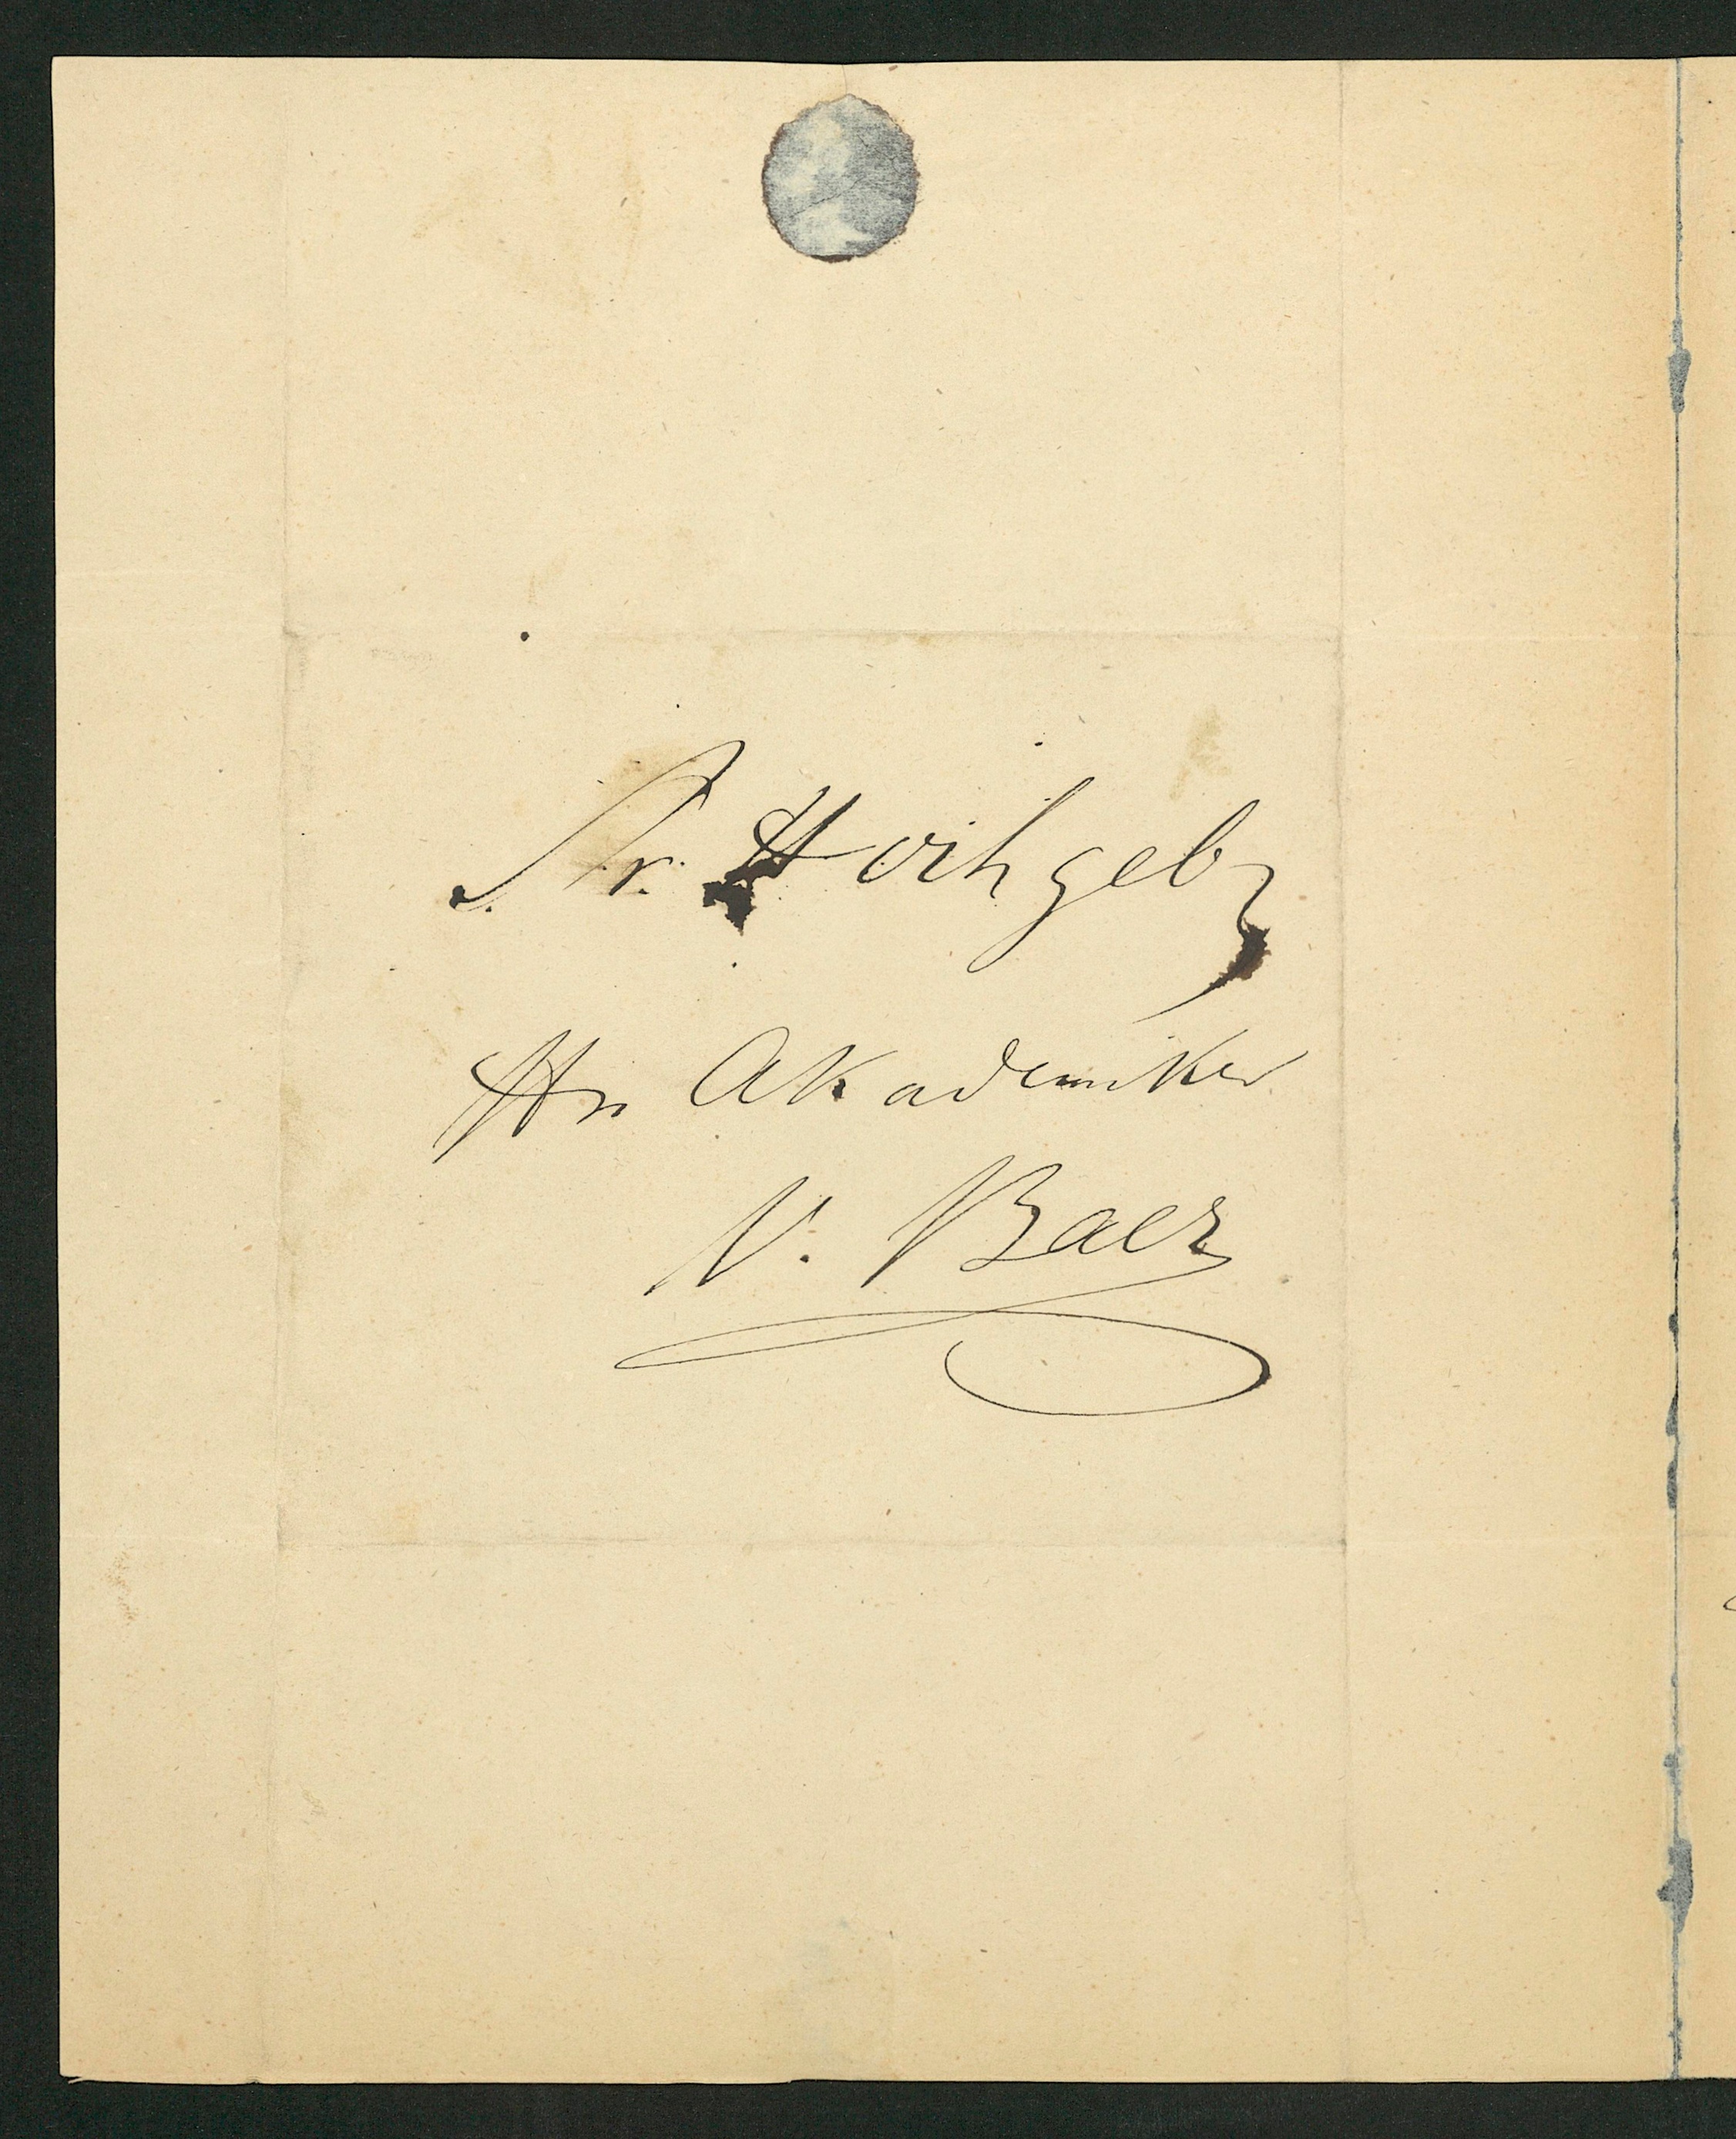 Sr. Hochgeb
Hn Akademiker
v. Baer